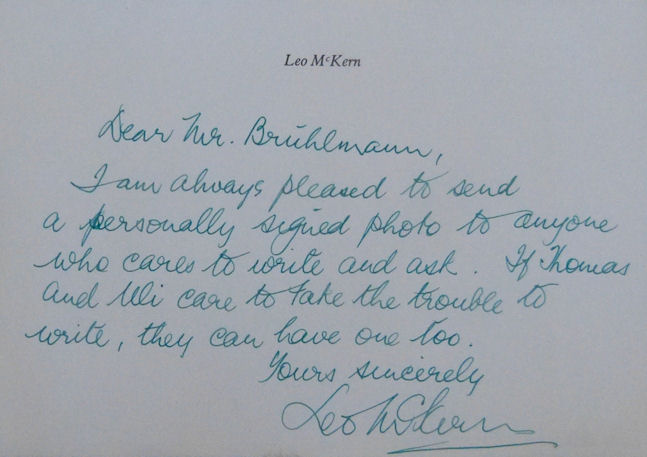 Leo McKern
Dear Mr. Brühlmann,
I am always pleased to send
a personally signed photo to anyone
who cares to write and ask. If Thomas
and Uli care to take the trouble to
write, they can have one too.
Yours sincerely
Leo McKern